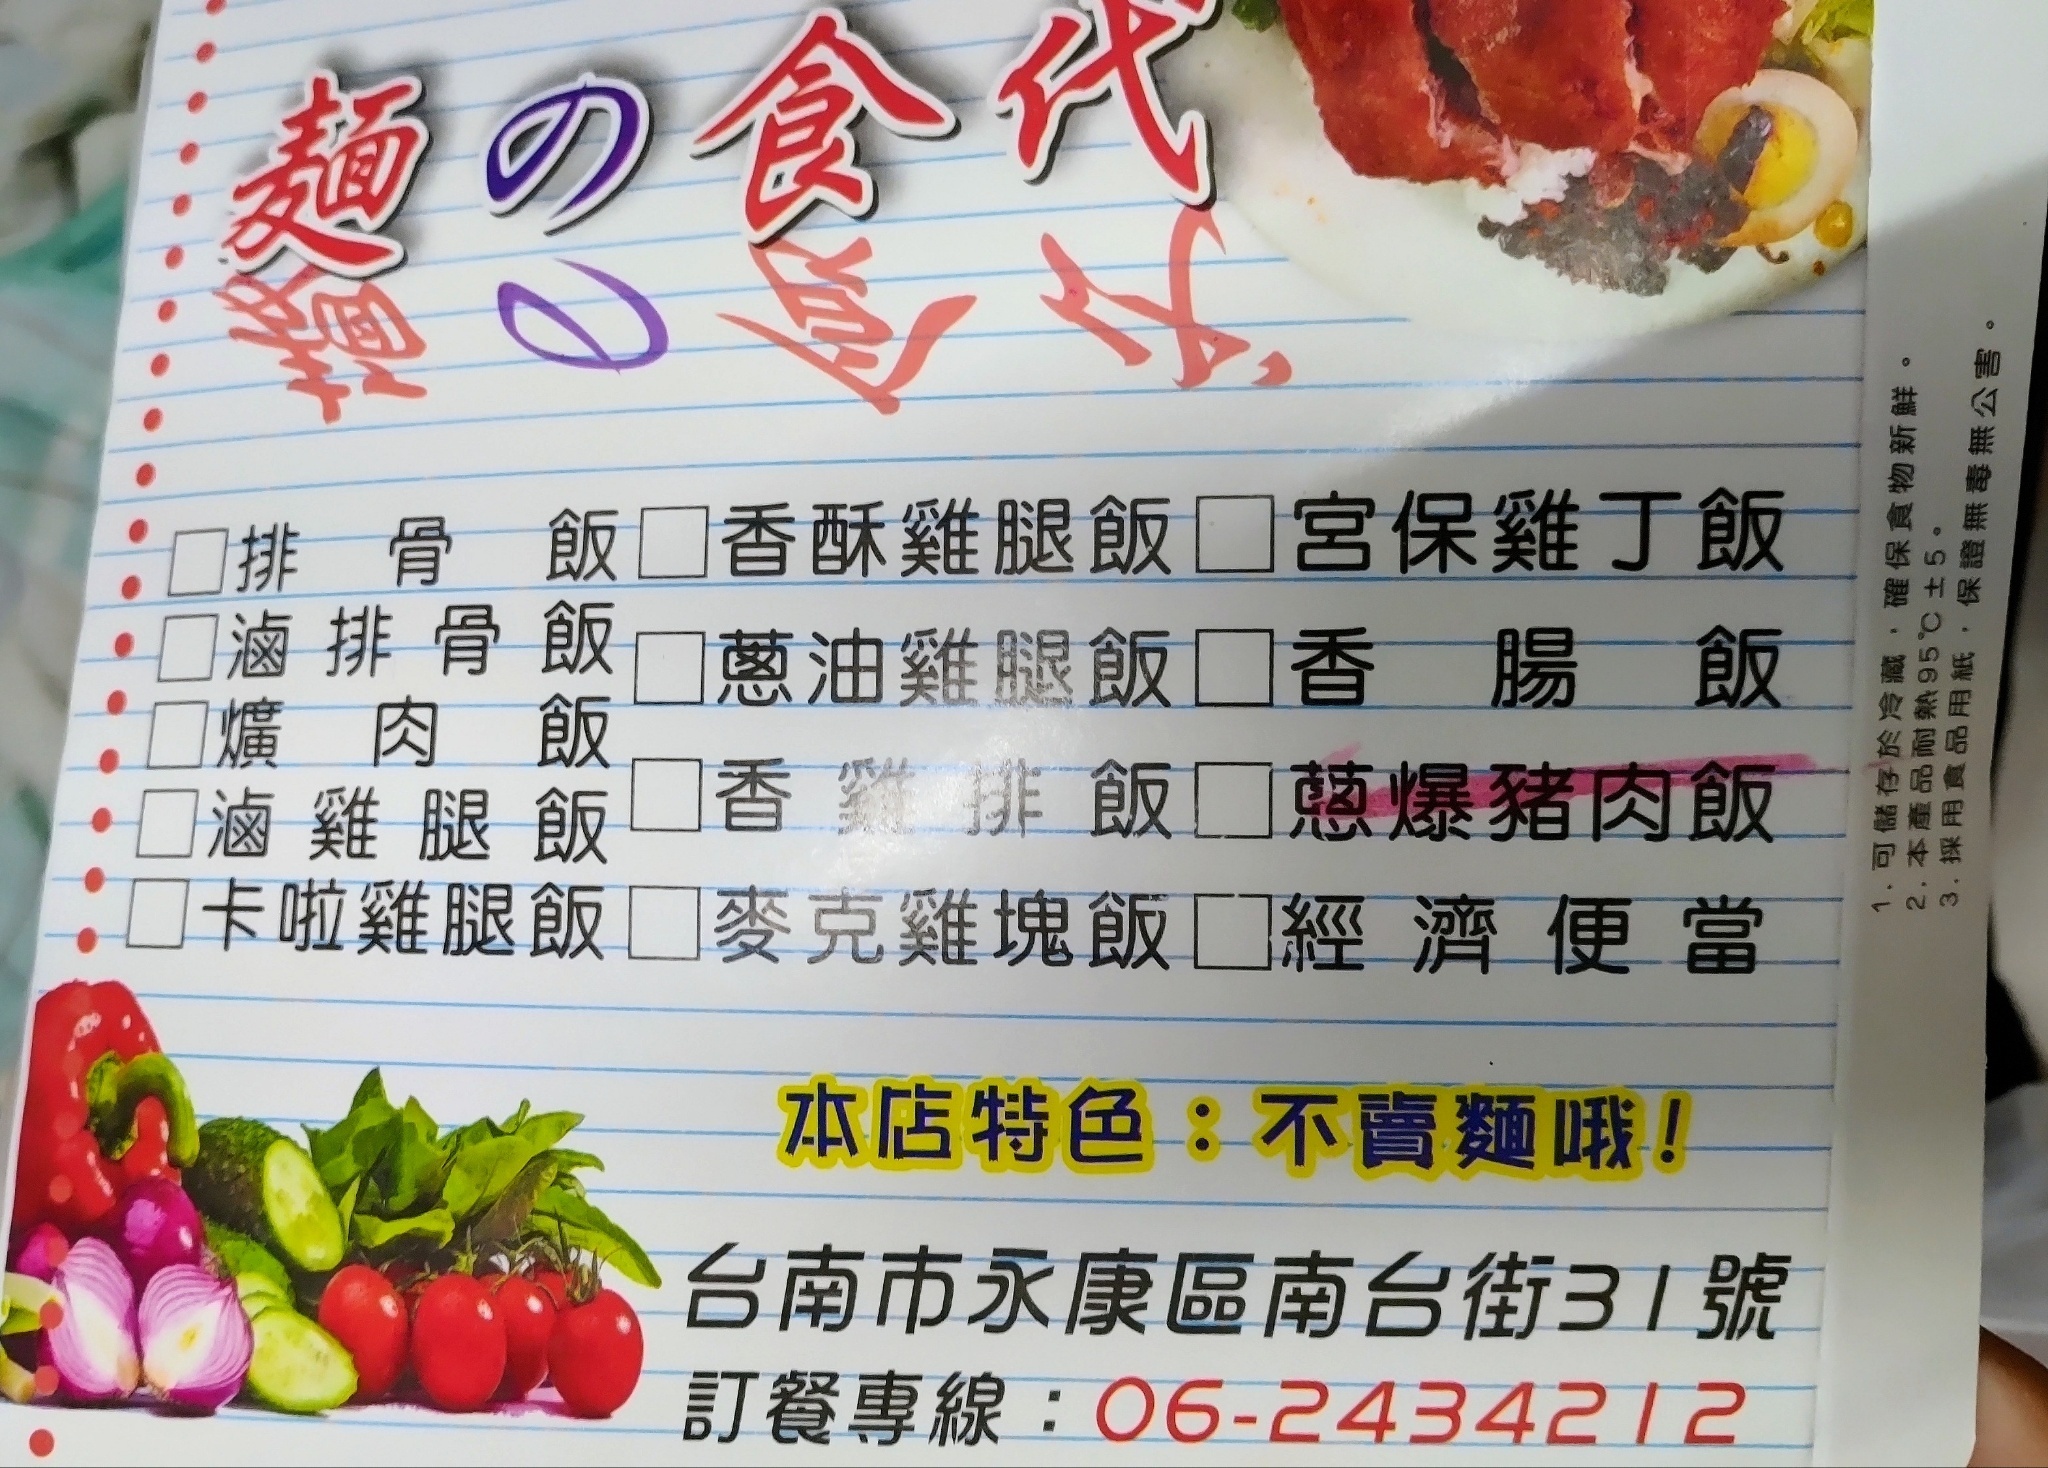 麵の食代
排骨飯
滷排骨飯
爌肉飯
滷雞腿飯
卡啦雞腿飯
香酥雞腿飯
蔥油雞腿飯
香雞排飯
麥克雞塊飯
宮保雞丁飯
香腸飯
蔥爆豬肉飯
經濟便當
本店特色：不賣麵哦!
台南市永康區南台街31號
訂餐專線：06-2434212
1.可儲存於冷藏，確保食物新鮮。
2.本產品耐熱95℃±5。
3.採用食品用紙，保證無毒無公害。